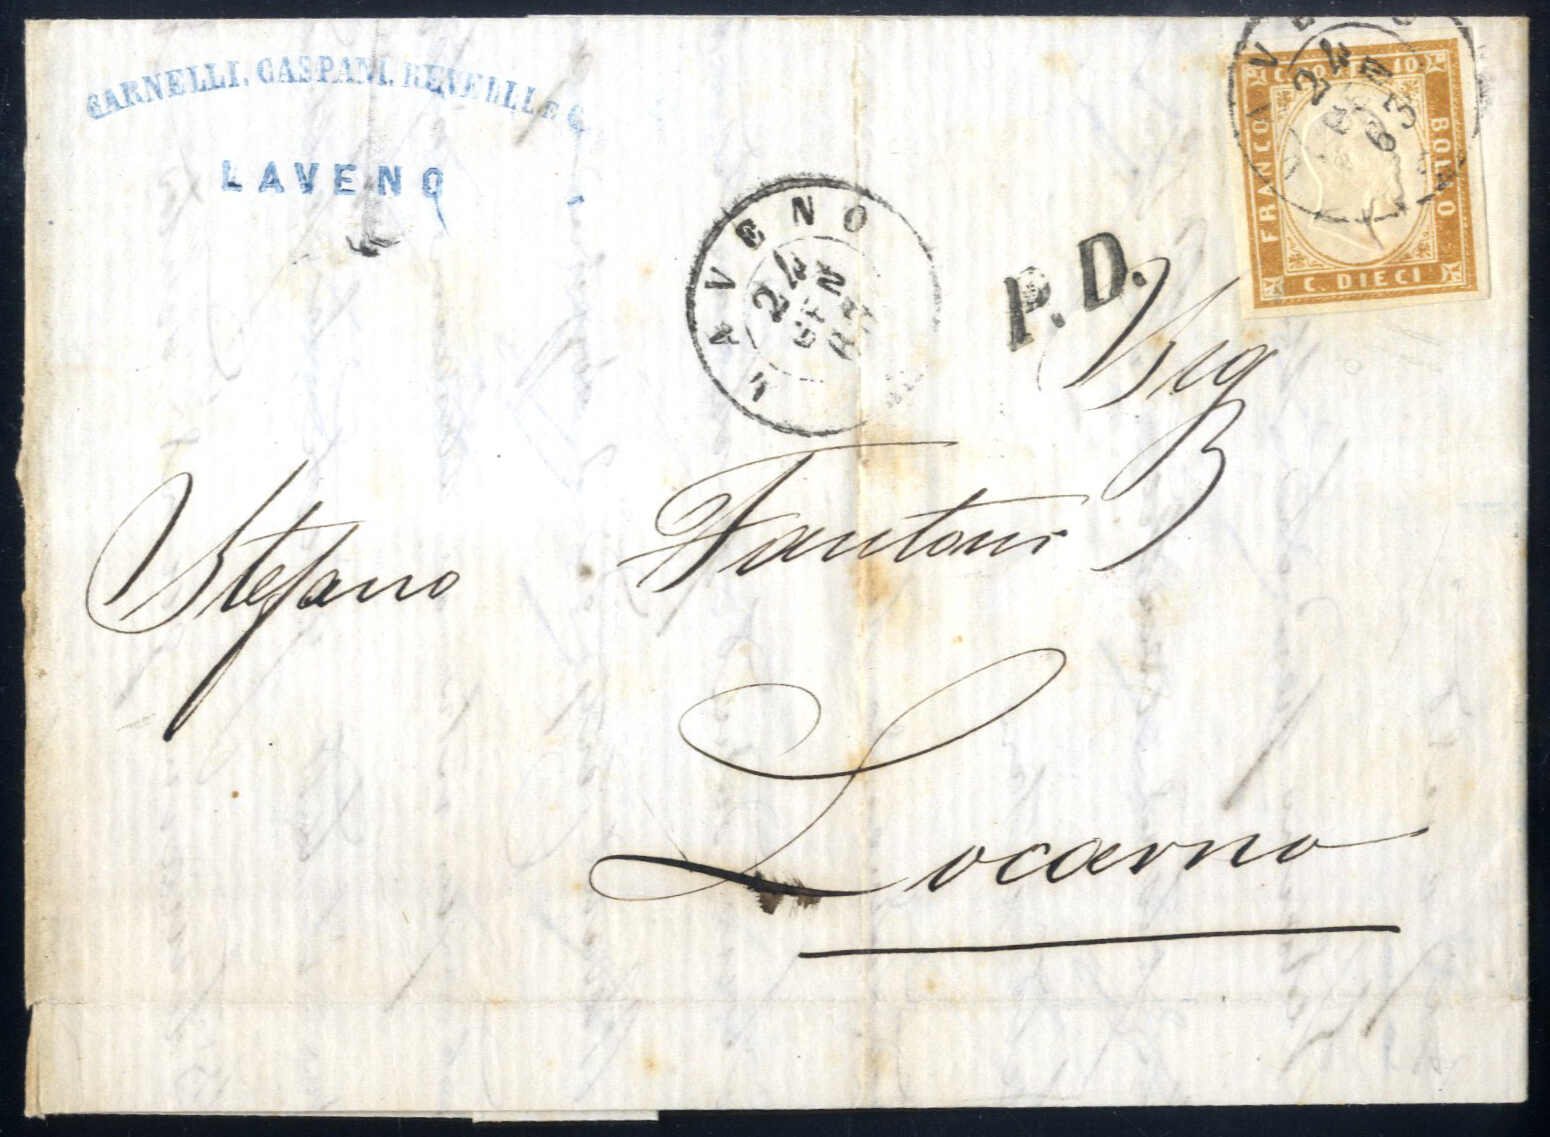 CARNELLI, GASPANI, REVELLI e C.
LAVENO
LAVENO
24
GEN
63
P. D.
C. 10
FRANCO
BOLLO
C. DIECI
24
GEN
63
Sig
Stefano Fantoni
Locarno